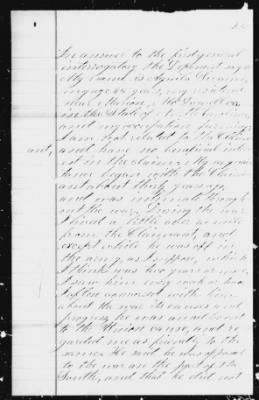 In answer to the first general
interrogatory the Deponent says
My name is
my age 64 years, my residence
in the State of North Carolina,
and my occupation
am not related to the Claim
ant, and have no beneficial inter
est in the claim. My acquain
tance began with the Claimant
about thirty years ago,
and was intimate through
out the war. During the war
I lived a little over a mile
from the Claimant, and
except while he was off in
the army, as I suppose, which
I think was two years or more,
I saw him every week or two
I often conversed with him
about the war its causes and
progress, he was
to the Union cause, and re
garded me as friendly to the
same. He said he was opposed
to the war on the part of the
South, and that he did not